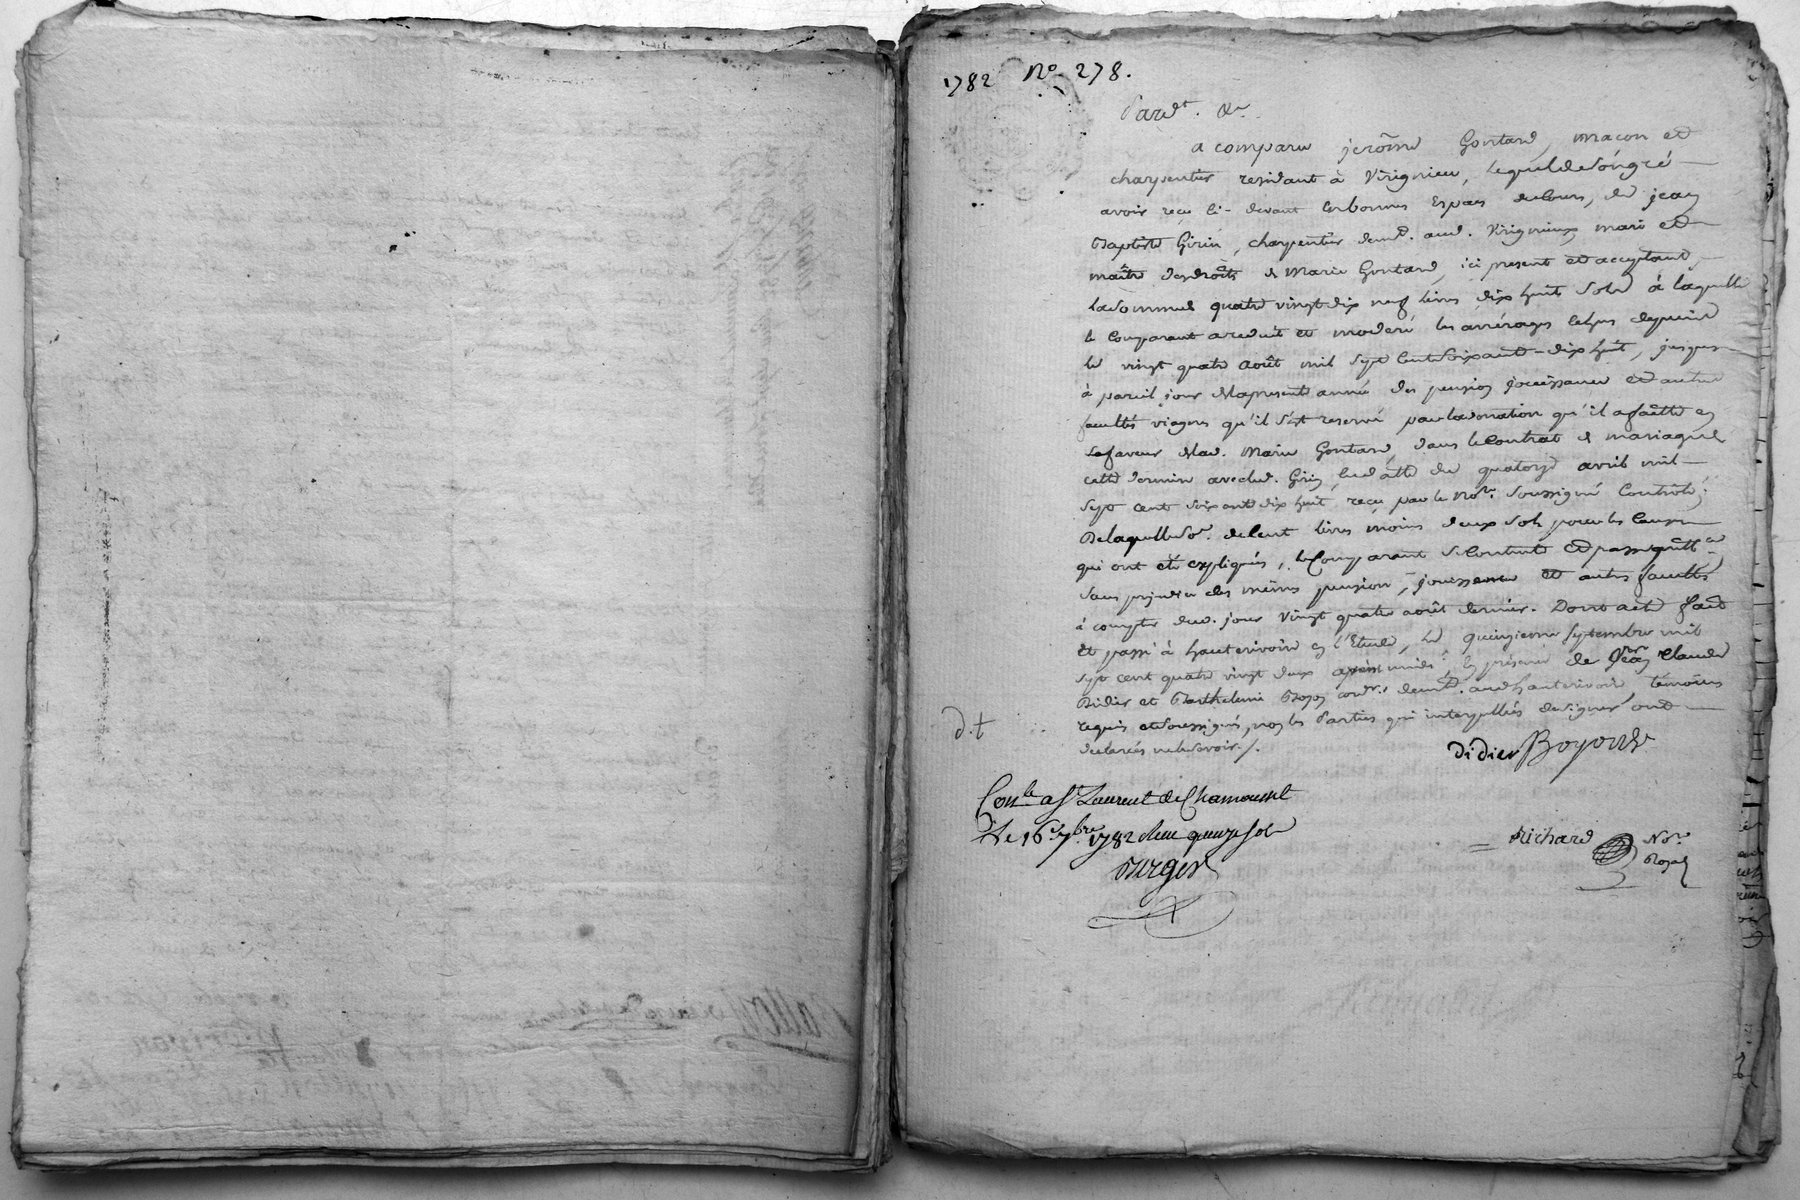 1782 No. 278.
Pard.t &a
a comparu jerôme Gontard, macon et
charpentier residant à Virignieu, lequel de Songré
avoir reçu ci-devant en bonnes Espèces de Cours, de jean
Baptiste Girin, charpentier demt. aud. Virignieux mari et
maître des droits de Marie Gontard, ici present et acceptant,
la Somme de quatre vingt dix neuf livres dix huit Sols à laquelle
le Comparant a reduit et moderé les arrérages echus depuis
le vingt quatre août mil Sept Cent Soixante-dix huit, jusques
à pareil jour de la presente année des pension jouissance et autres
facultés viageres qu'il s'est reservé par la donation qu'il a faitte en
la faveur de lad. Marie Gontard, dans le Contrat de mariage de
cette derniere avec led. Girin, en datte du quatorze avril mil
Sept cent Soixante dix huit reçu par le Nore. Soussigné Controlé;
De laquelle So.e de Cent livres moins deux Sols pour les Causes
qui ont été expliqués, le Comparant Se Contente et passe quittce.
Sans prejudice des mêmes pension, jouissance et autres facultés
à compter dud. jour vingt quatre août dernier. Dont acte fait
et passé à hauterivoire en l'Etude, le quinzieme Septembre mil
Sept cent quatre vingt deux après midi: En présence de Srs. Jean Claude
Didier et Barthelemi Boyon cordrs. demt. aud. hauterivoire, témoins
requis et Soussignés, non les Parties qui interpellées de signer ont
declarées ne le Savoir./.
d.t
Didier Boyon
Conlé a St Laurent de Chamousset
Le 16e 7bre 1782 Reçu quinze Sols
Berger
= Richard Nore
Royal